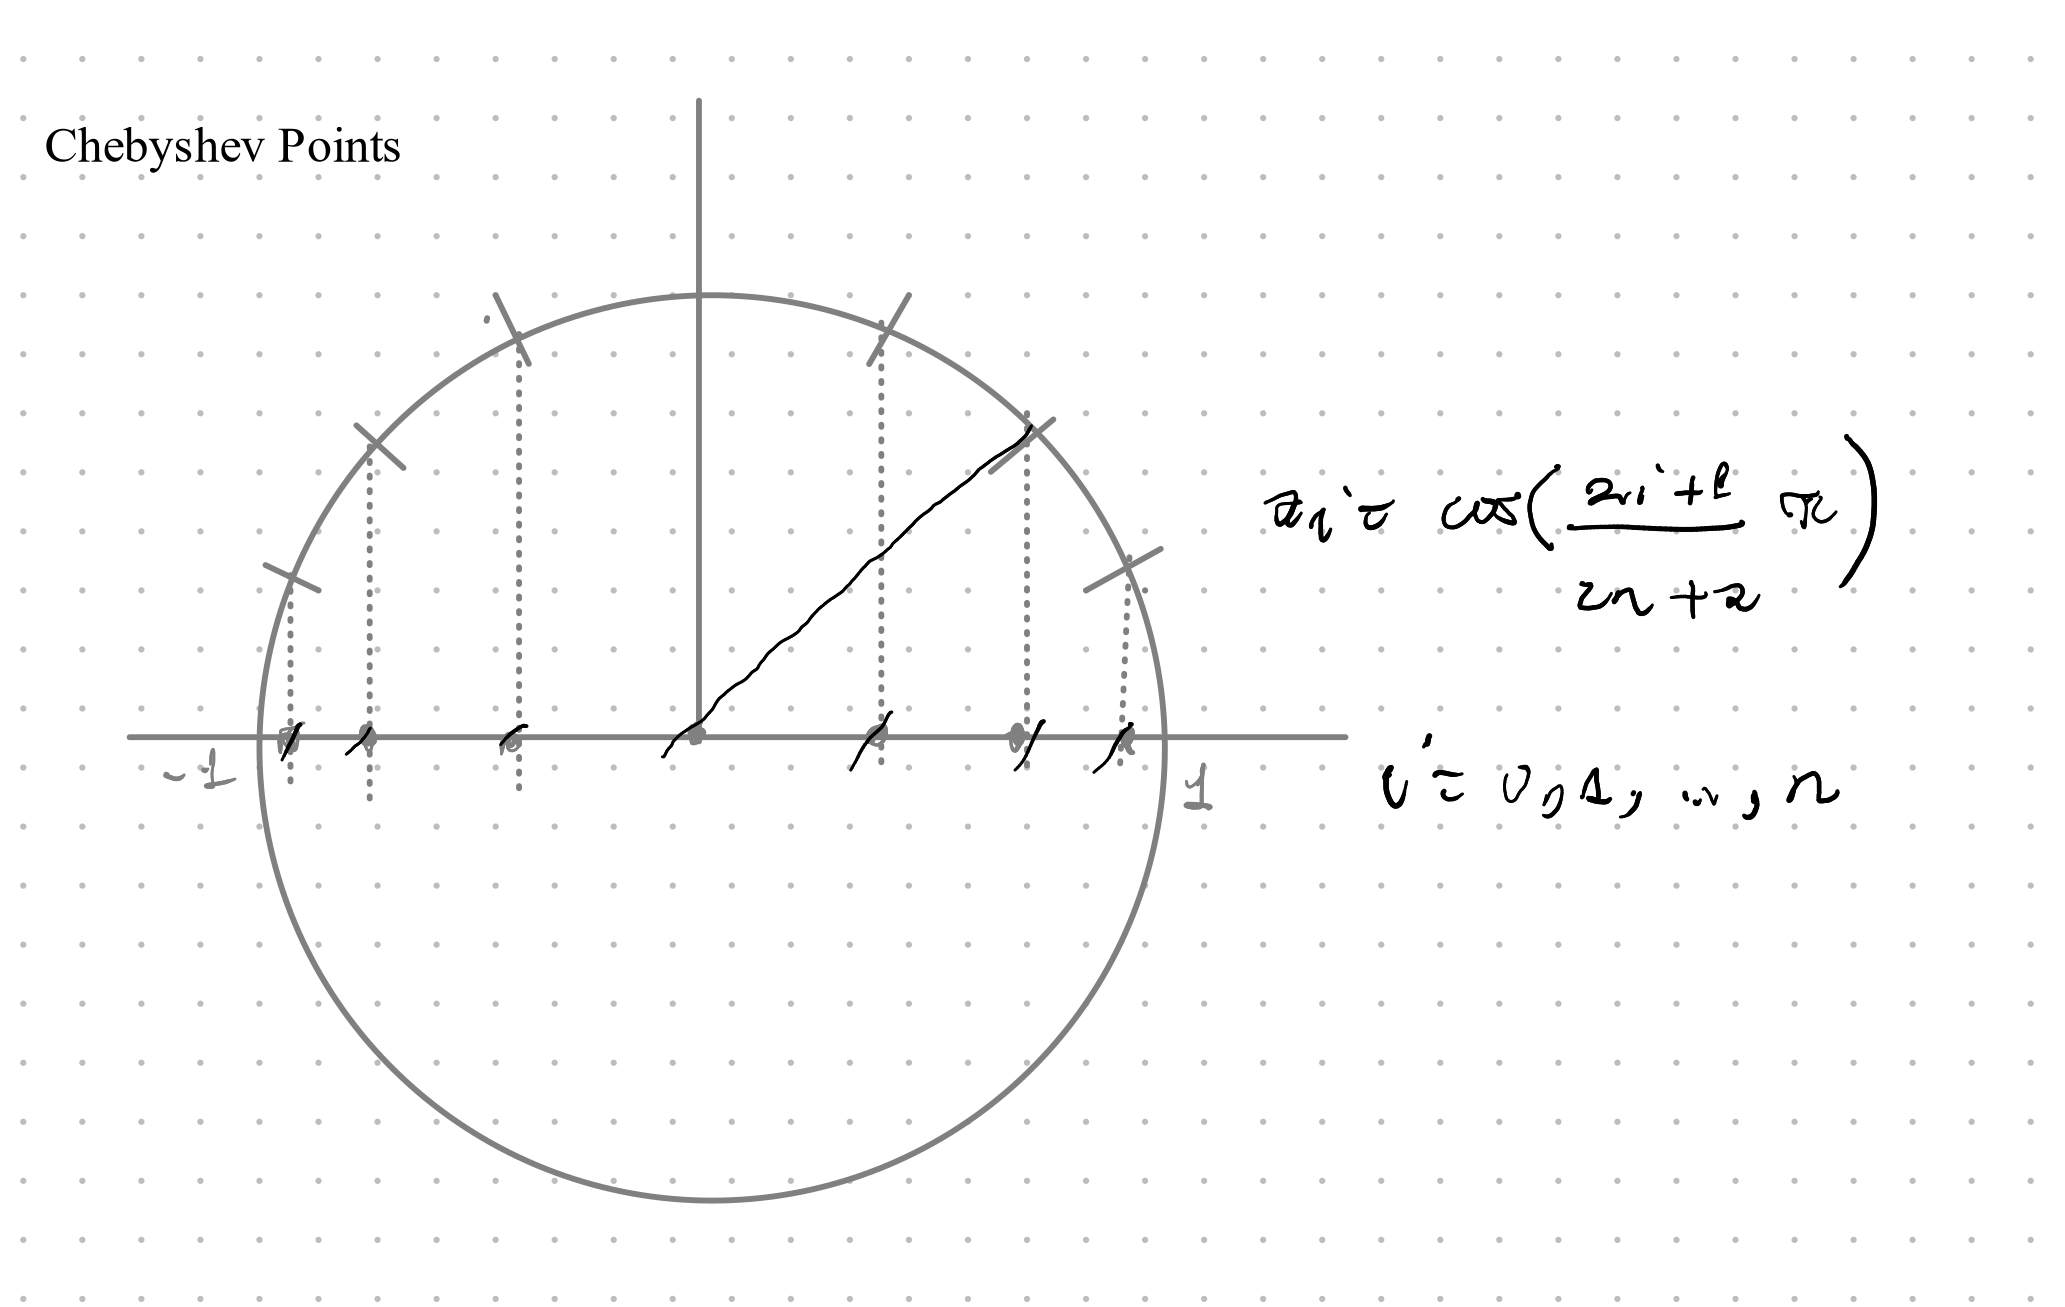 Chebyshev Points
xi = cos( 2i+1 π )
2n+2
-1
1
i = 0, 1, ..., n